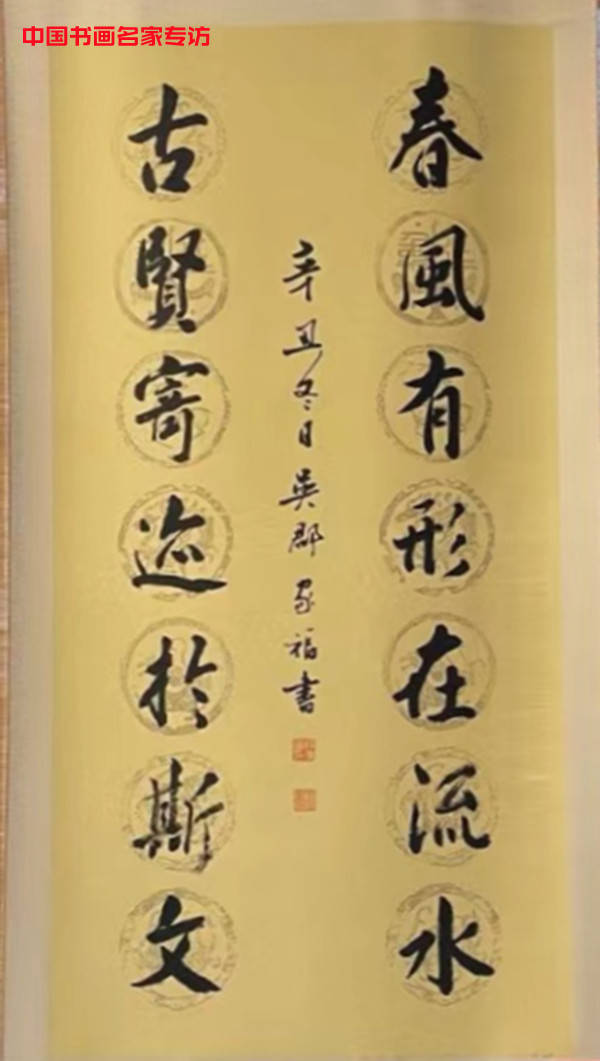 中国书画名家专访
春風有形在流水
古賢寄迹於斯文
辛丑冬日吳郡家福書